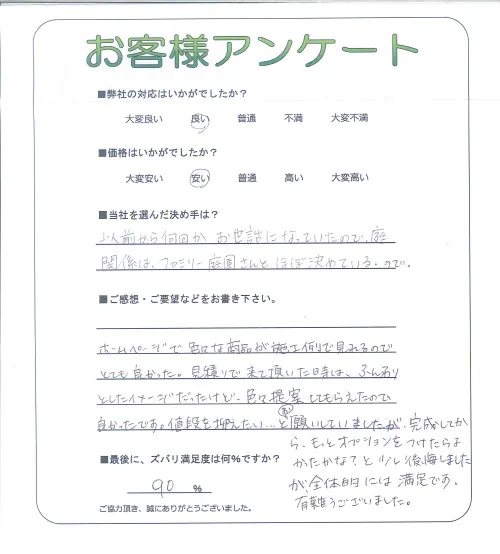 お客様アンケート
■弊社の対応はいかがでしたか？
大変良い 良い 普通 不満 大変不満
■価格はいかがでしたか？
大変安い 安い 普通 高い 大変高い
■当社を選んだ決め手は？
以前から何回か お世話になっていたので、庭
関係は、ファミリー庭園さんと ほぼ決めている。ので。
■ご感想・ご要望などをお書き下さい。
ホームページで 色々な商品が施工例で見れるので
とても良かった。見積りで来て頂いた時は、ふんわり
としたイメージだったけど、色々提案してもらえたので
良かったです。値段を抑えたい…とお願いしていましたが、完成してか
ら、もっとオプションをつけたらよ
かったかな？と 少し後悔しました
が、全体的には満足です。
有難うございました。
■最後に、ズバリ満足度は何％ですか？
90 ％
ご協力頂き、誠にありがとうございました。